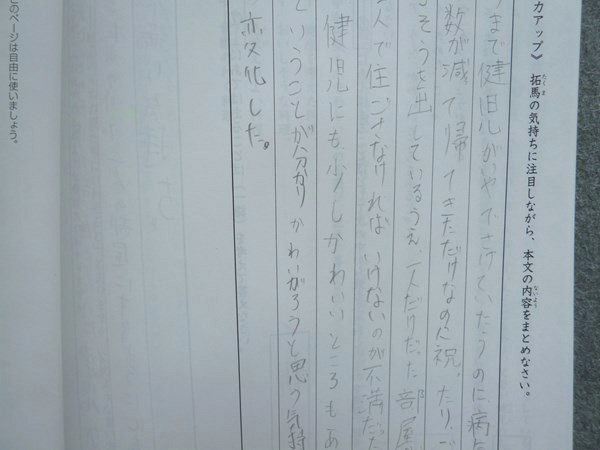 カアップ》 拓馬の気持ちに注目しながら、本文の内容をまとめなさい。
まで健児がいやでさけていたうのに病
数が減って帰ってきただけなのに祝ったり、ご
そうを出しているうえ、一人だけだった部屋
人で住ごさなければいけないのが不満だった
健児にも少しかわいいところもあ
ということが分かりかわいがろうと思う気持
変化した。
このページは自由に使いましょう。